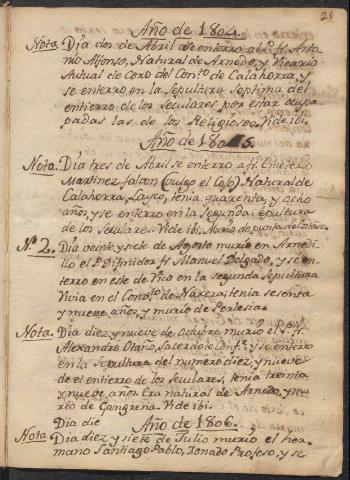 21
Año de 1804.
Nota. Dia dos de Abril se enterro al P. fr. Anto-
nio Alfonso, Natural de Arnedo, y Vicario
Autual de Coro del Con.to de Calahorra, y
se enterro en la Sepultura Septima del
entierro de los seculares por estar ocupa-
padas las de los Religiosos. Vide ibi.
Año de 1805.
Nota. Dia tres de Abril se enterro a fr. Emeterio
Martinez falcon (vulgo el Cojo) Natural de
Calahorra, Layco, tenia quarenta, y ocho
años, y se enterro en la Segunda sepultura
de los seculares. Vide ibi. Murio de punta de Costave.
N.º 2. Dia veinte, y siete de Agosto murio en Arnedi-
llo el P. Difinidor fr. Manuel Delgado, y se en-
terro en este de Vico en la segunda sepultura
Vivia en el Conv.to de Naxera; tenia sesenta
y nueve años, y murio de Perlesia.
Nota. Dia diez, y nueve de Octubre murio el P. fr.
Alexandro Otaño, Sacerdote Conf.r y se enterro
en la Sepultura del numero diez, y nueve
de el entierro de los seculares, tenia treinta
y nueve años. Era natural de Arnedo, y mu-
rio de Gangrena. Vide ibi.
Dia die Año de 1806.
Nota. Dia diez, y siete de Julio murio el her-
mano Santiago Pablo, Donado Profeso, y se